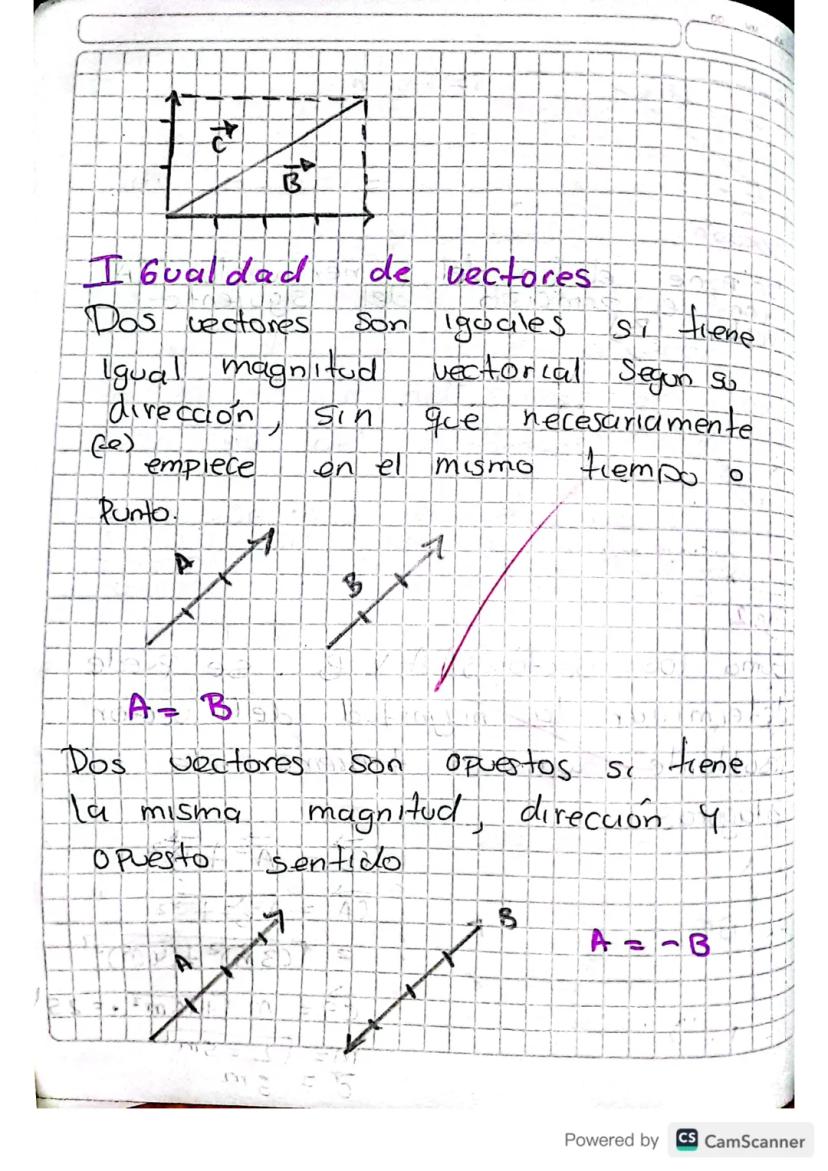 C
B
IGualdad de vectores
Dos vectores son iguales si tiene
igual magnitud vectorial segun su
dirección, sin que necesariamente
(ce)
empiece en el mismo tiempo o
Punto.
A
B
A = B
Dos vectores son opuestos si tiene
la misma magnitud, dirección y
opuesto sentido
A
B
A = - B
Powered by CS CamScanner